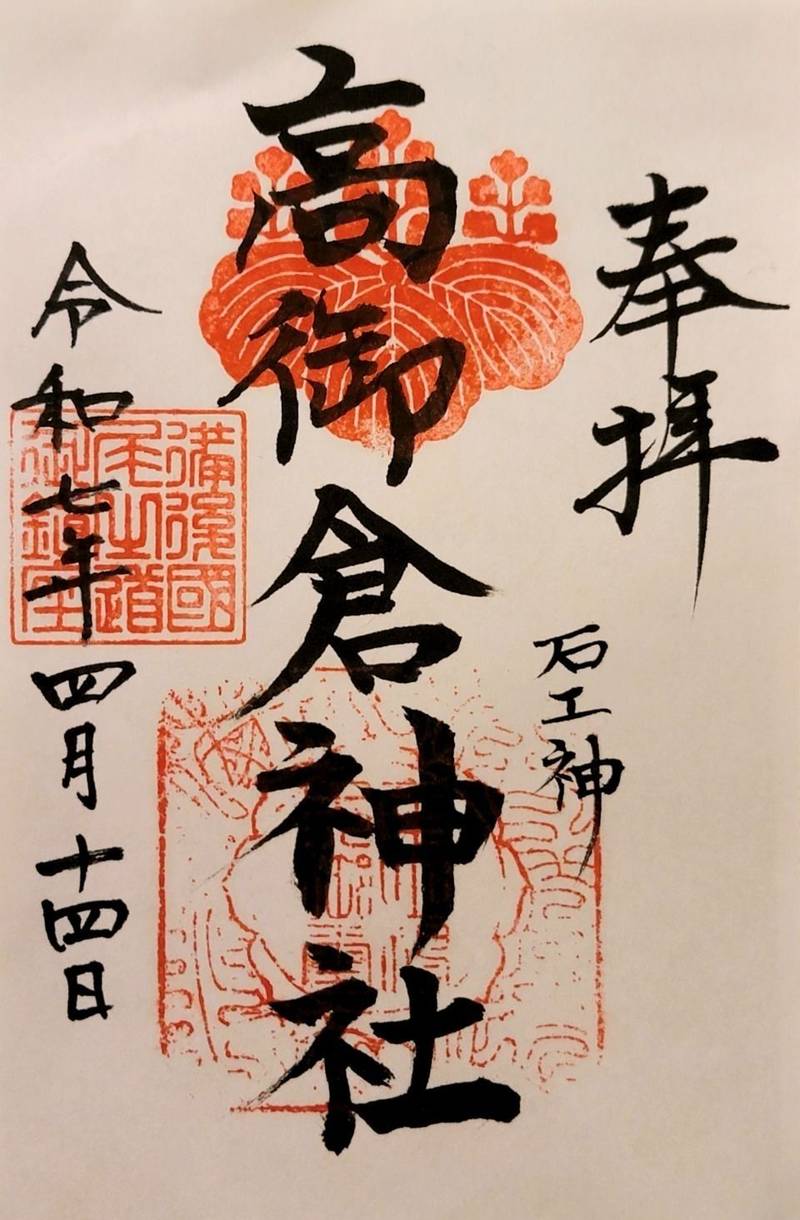 奉拝
石工神
高御倉神社
備後國
尾道
御鎮座
令和七年四月十四日